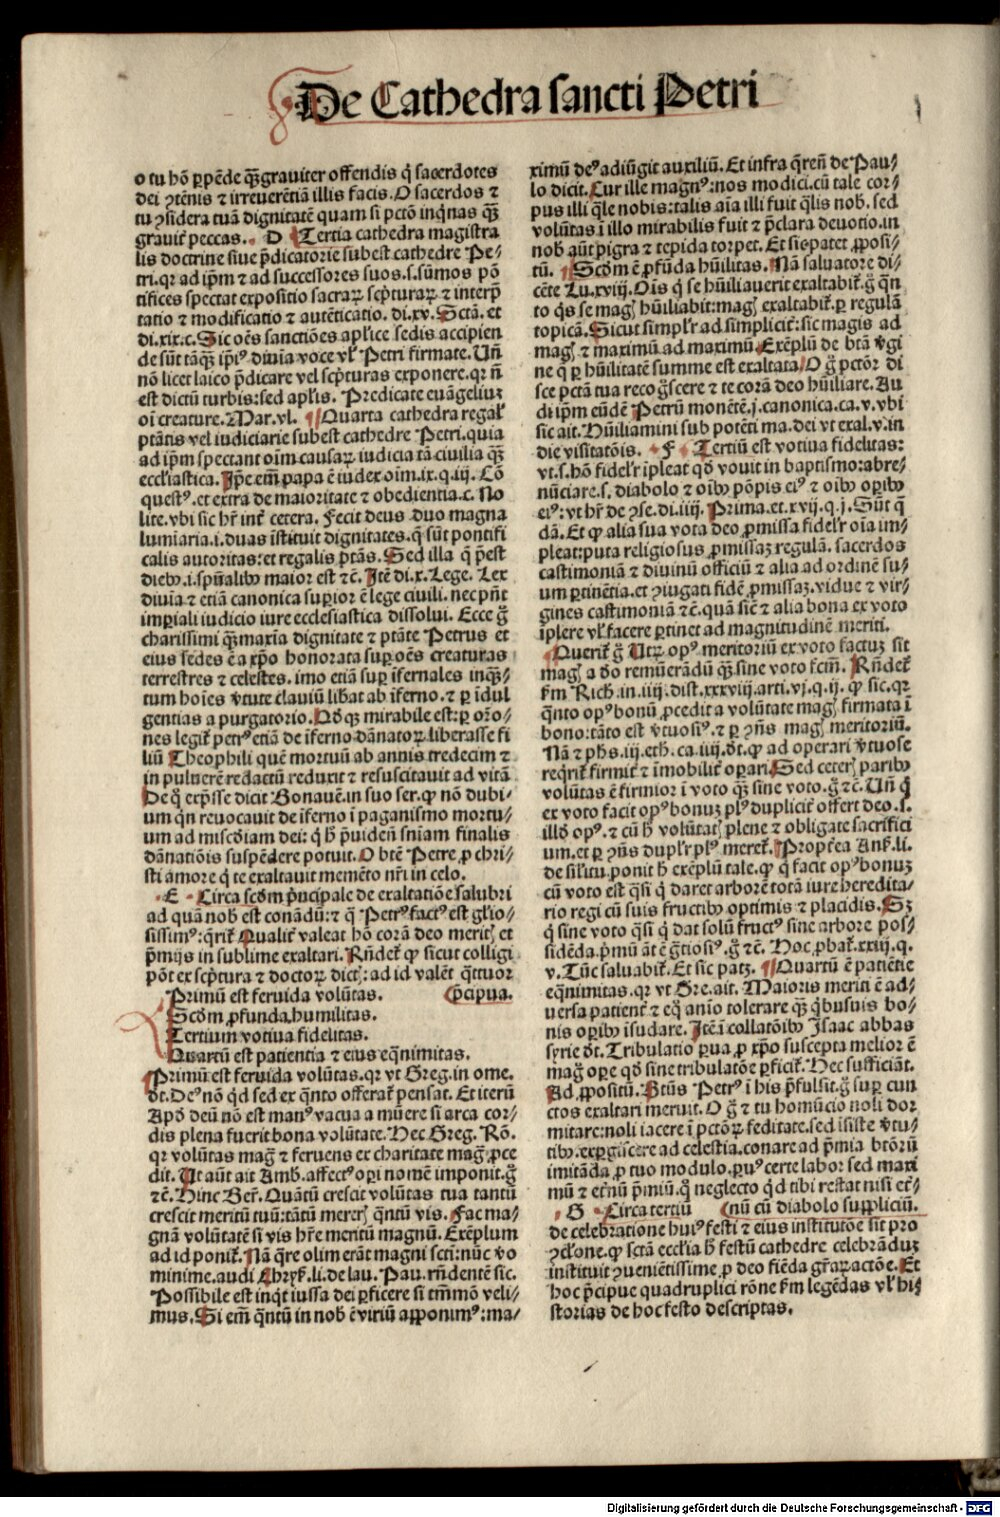 De Cathedra sancti Petri
o tu hō ꝑpēde qͣꝫgrauiter offendis q̄ sacerdotes
dei ꝯtēnis ⁊ irreuerētiā illis facis. O sacerdos ⁊
tu ꝯsidera tuā dignitatē quam si pctō inqͥnas qͣꝫ
grauiť peccas. D Tertia cathedra magistra
lis doctrine siue p̄dicatorie subest cathedre Pe-
tri. qꝛ ad ip̄m ⁊ ad successores suos .s. sūmos pō
tifices spectat expositio sacraꝝ sc̄pturaꝝ ⁊ interp̄
tatio ⁊ modificatio ⁊ autēticatio. di. xv. Sctā. et
di. xix. c. Sic oēs sanctiōes aplīce sedis accipien
de sūt tāqͣꝫ ip̄iꝰ diuīa voce vł Petri firmate. Uñ
nō licet laico p̄dicare vel sc̄pturas exponere. qꝛ ñ
est dictū turbis: sed aplīs. Predicate euāgeliuꝫ
oī creature. Mar. vl. Quarta cathedra regał
ptātis vel iudiciarie subest cathedre Petri. quia
ad ip̄m spectant oīm causaꝝ iudicia tā ciuilia qͣꝫ
ecclīastica. Ip̄e em̄ papa ē iudex oīm. ix. q. iij. Cō
questꝰ. et extra de maioritate ⁊ obedientia. c. So
lite. vbi sic hr̄ int̄ cetera. Fecit deus duo magna
lumiaria. i. duas īstituit dignitates. q̄ sūt pontifi
calis autoritas: et regalis ptās. Sed illa q̄ p̄est
diebꝰ. i. spūalibꝰ maior est ⁊c̄. Itē di. x. Lege. Lex
diuīa ⁊ etiā canonica suꝑior ē lege ciuili. nec pn̄t
imꝑiali iudicio iure ecclesiastica dissolui. Ecce ḡ
charissimi qͣꝫ maxīa dignitate ⁊ ptāte Petrus et
eius sedes ē a xp̄o honorata suꝑ oēs creaturas
terrestres ⁊ celestes. imo etiā suꝑ īfernales inqͣꝫ-
tum hoīes ṽtute clauiū libāt ab īferno. ⁊ ꝑ īdul
gentias a purgatorio. Qd̓qꝫ mirabile est: ꝑ orō-
nes legiť petrꝰ etiā de īferno dānatoꝝ liberasse fi
liū Theophili quē mortuū ab annis tredecim ⁊
in puluerē redactū reduxit ⁊ resuscitauit ad vitā
De qͦ exp̄sse dicit Bonauē. in suo ser. ꝙ nō dubi-
um qn̄ reuocauit de īferno ī paganismo mortu-
um ad misc̄diam dei: q̄ h̓ p̄uidēs sn̄iam finalis
dānatiōis suspēdere potuit. O btē Petre ꝓ chri-
sti amore q̄ te exaltauit memēto nr̄i in celo.
E Circa scd̓m p̄ncipale de exaltatiōe salubri
ad quā nob̄ est conādū: ⁊ q̄ Petrꝰ factꝰ est glīo-
sissimꝰ: q̄riť Qualiť valeat hō corā deo meritꝭ et
p̄mijs in sublime exaltari. Rn̄deť ꝙ sicut colligi
pōt ex sc̄ptura ⁊ doctoꝝ dictꝭ: ad id valēt qͣttuor
Primū est feruida volūtas. p̄cipua.
Scd̓m ꝓfunda humilitas.
Tertium votiua fidelitas.
Quartū est patientia ⁊ eius eqͣnimitas.
Primū est feruida volūtas. qꝛ vt Greg. in ome.
d̓t. Deꝰ nō qͥd sed ex qͣnto offerať pensat. Et iterū
Apd̓ deū nō est manꝰ vacua a mūere si arca cor-
dis plena fuerit bona volūtate. Hec Greg. Rō.
qꝛ voluntas magͣ ⁊ feruens ex charitate magͣ ꝓce
dit. Ut aūt ait Amb. affectꝰ oꝑi nomē imponit. ḡ
⁊c̄. Hinc Ber̄. Quātū crescit volūtas tua tantū
crescit meritū tuū: tātū merer̄ꝭ qͣntū vis. Fac ma-
gnā volūtatē si vis hr̄e meritū magnū. Exēplum
ad id poniť. Nā qͣre olim erāt magni sctī: nūc ṽo
minime. audi Chryẜ. li. de lau. Pau. rn̄dentē sic.
Possibile est inqͥt iussa dei ꝑficere si tm̄mō veli-
mus. Si em̄ qͣntū in nob̄ ē viriū apponimꝰ: ma-
ximū deꝰ adiūgit auxiliū. Et infra qͣren̄ de Pau-
lo dicit. Cur ille magnꝰ: nos modici. cū tale cor-
pus illi qͣle nobis: talis aīa illi fuit qͣlis nob̄. sed
volūtas ī illo mirabilis fuit ⁊ p̄clara deuotio. in
nob̄ aūt pigra ⁊ tepida torpet. Et sic patet ꝓposi-
tū. Scd̓m ē ꝓfūda hūilitas. Nā saluatore di-
cēte Lu. xviij. Oīs q̄ se hūiliauerit exaltabiť. ḡ qͣn
to qͥs se magꝭ hūiliabit: magꝭ exaltabiť. ꝑ regulā
topicā. Sicut simplr̄ ad simpliciť: sic magis ad
magꝭ ⁊ maximū ad maximū. Exēplū de btā ṽgi
ne q̄ ꝑ hūilitatē summe est exaltata. O ḡ pctōr di
sce pctā tua recogͦscere ⁊ te corā deo hūiliare. Au
di ip̄m eūdē Petrū monētē. j. canonica. ca. v. vbi
sic ait. Hūiliamini sub potēti ma. dei vt exal. v. in
die visitatōis. F Tertiū est votiua fidelitas:
vt. s. hō fidelr̄ īpleat qd̓ vouit in baptismo: abre-
nūciare. s. diabolo ⁊ oībꝰ pōpis eiꝰ ⁊ oībꝰ oꝑibꝰ
eiꝰ: vt hr̄ de ꝯse. di. iiij. Prima. et. xvij. q. j. Sūt q̄
dā. Et ꝙ alia sua vota deo ꝓmissa fidelr̄ oīa im-
pleat: puta religiosus ꝓmissaꝫ regulā. sacerdos
castimoniā ⁊ diuinū officiū ⁊ alia ad ordinē su-
um ꝑtinētia. et ꝯiugati fidē ꝓmissaꝫ. vidue ⁊ vir-
gines castimoniā ⁊c̄. quā siīē ⁊ alia bona ex voto
īplere vł facere ꝑtinet ad magnitudinē meriti.
Queriť ḡ Utꝝ opꝰ meritoriū ex voto factuꝫ sit
magꝭ a d̓o remūerādū qͣꝫ sine voto fctm̄. Rn̄deť
ẜm Rich. in. iiij. dist. xxxviij. arti. vj. q. ij. ꝙ sic. qꝛ
qͣnto opꝰ bonū ꝓcedit a volūtate magꝭ firmata ī
bono: tāto est ṽtuosiꝰ. ⁊ ꝑ ꝯn̄s magꝭ meritoriū.
Nā ⁊ phs̄. iij. eth. ca. iiij. d̓t. ꝙ ad operari ṽtuose
reqͥriť firmiť ⁊ īmobiliť oꝑari. Sed ceterꝭ paribꝰ
volūtas ē firmior ī voto qͣꝫ sine voto. ḡ ⁊c̄. Uñ q̄
ex voto facit opꝰ bonuꝫ plꝰ dupliciť offert deo. s.
illd̓ opꝰ. ⁊ cū h̓ volūtatꝭ plene ⁊ obligate sacrifici
um. et ꝑ ꝯn̄s duplr̄ plꝰ mereť. Propt̄ea Anẜ. li.
de siłitu. ponit h̓ exēplū tale. ꝙ q̄ facit opꝰ bonuꝫ
cū voto est qͣsi q̄ daret arborē totā iure heredita-
rio regi cū suis fructibꝰ optimis ⁊ placidis. Sꝫ
q̄ sine voto qͣsi q̄ dat solū fructꝰ sine arbore pos-
sidēda. p̄mū āt ē gͣtiosiꝰ. ḡ ⁊c̄. Hoc ꝓbať. xxiij. q.
v. Tūc saluabiť. Et sic patꝫ. Quartū ē patiētie
eqͣnimitas. qꝛ vt Gre. ait. Maioris meriti ē ad-
uersa patienť ⁊ eqͦ anīo tolerare qͣꝫ qͥbusuis bo-
nis oꝑibꝰ īsudare. Itē ī collatōibꝰ Isaac abbas
syrie d̓t. Tribulatio ꝑua ꝓ xp̄o suscepta melior ē
magͦ oꝑe qd̓ sine tribulatōe ꝑficiť. Hec sufficiāt.
Ad ꝓpositū. Btūs Petrꝰ ī his p̄fulsit. ḡ suꝑ cun
ctos exaltari meruit. O ḡ ⁊ tu homūcio noli dor
mitare: noli iacere ī pctōꝝ feditate. sed īsiste ṽtu-
tibꝰ. exꝑgiscere ad celestia. conare ad p̄mia btōrū
imitāda ꝓ tuo modulo. ꝑuꝰ certe labor sed maxi
mū ⁊ etn̄ū p̄miū. qͦ neglecto qͥd tibi restat nisi etr̄-
G Circa tertiū nū cū diabolo suppliciū.
de celebratione huiꝰ festi ⁊ eius institutōe sit pro
ꝯclōne. ꝙ sctā ecclīa h̓ festū cathedre celebrāduꝫ
instituit ꝯueniētissime ꝓ deo fiēda gr̄aꝝ actōe. Et
hoc p̄cipue quadruplici rōne ẜm legēdas vł hi-
storias de hoc festo descriptas.
Digitalisierung gefördert durch die Deutsche Forschungsgemeinschaft - DFG